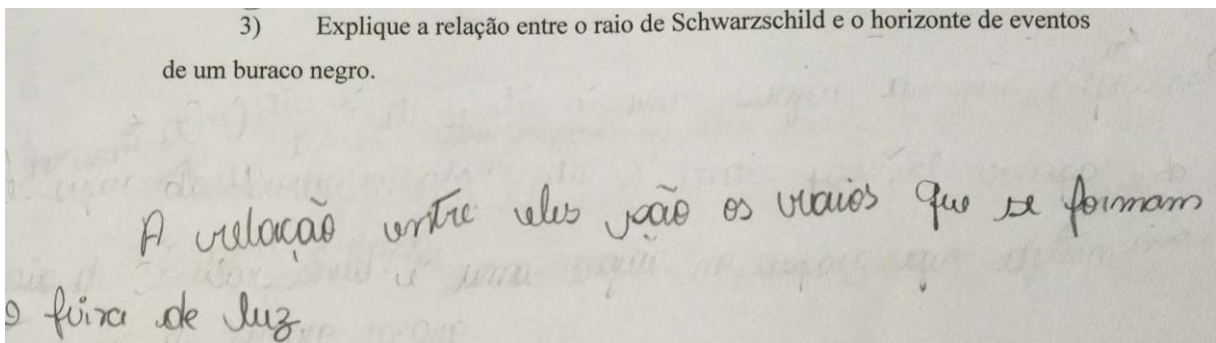 3) Explique a relação entre o raio de Schwarzschild e o horizonte de eventos
de um buraco negro.
A relação entre eles são os raios que se formam
e feixe de luz